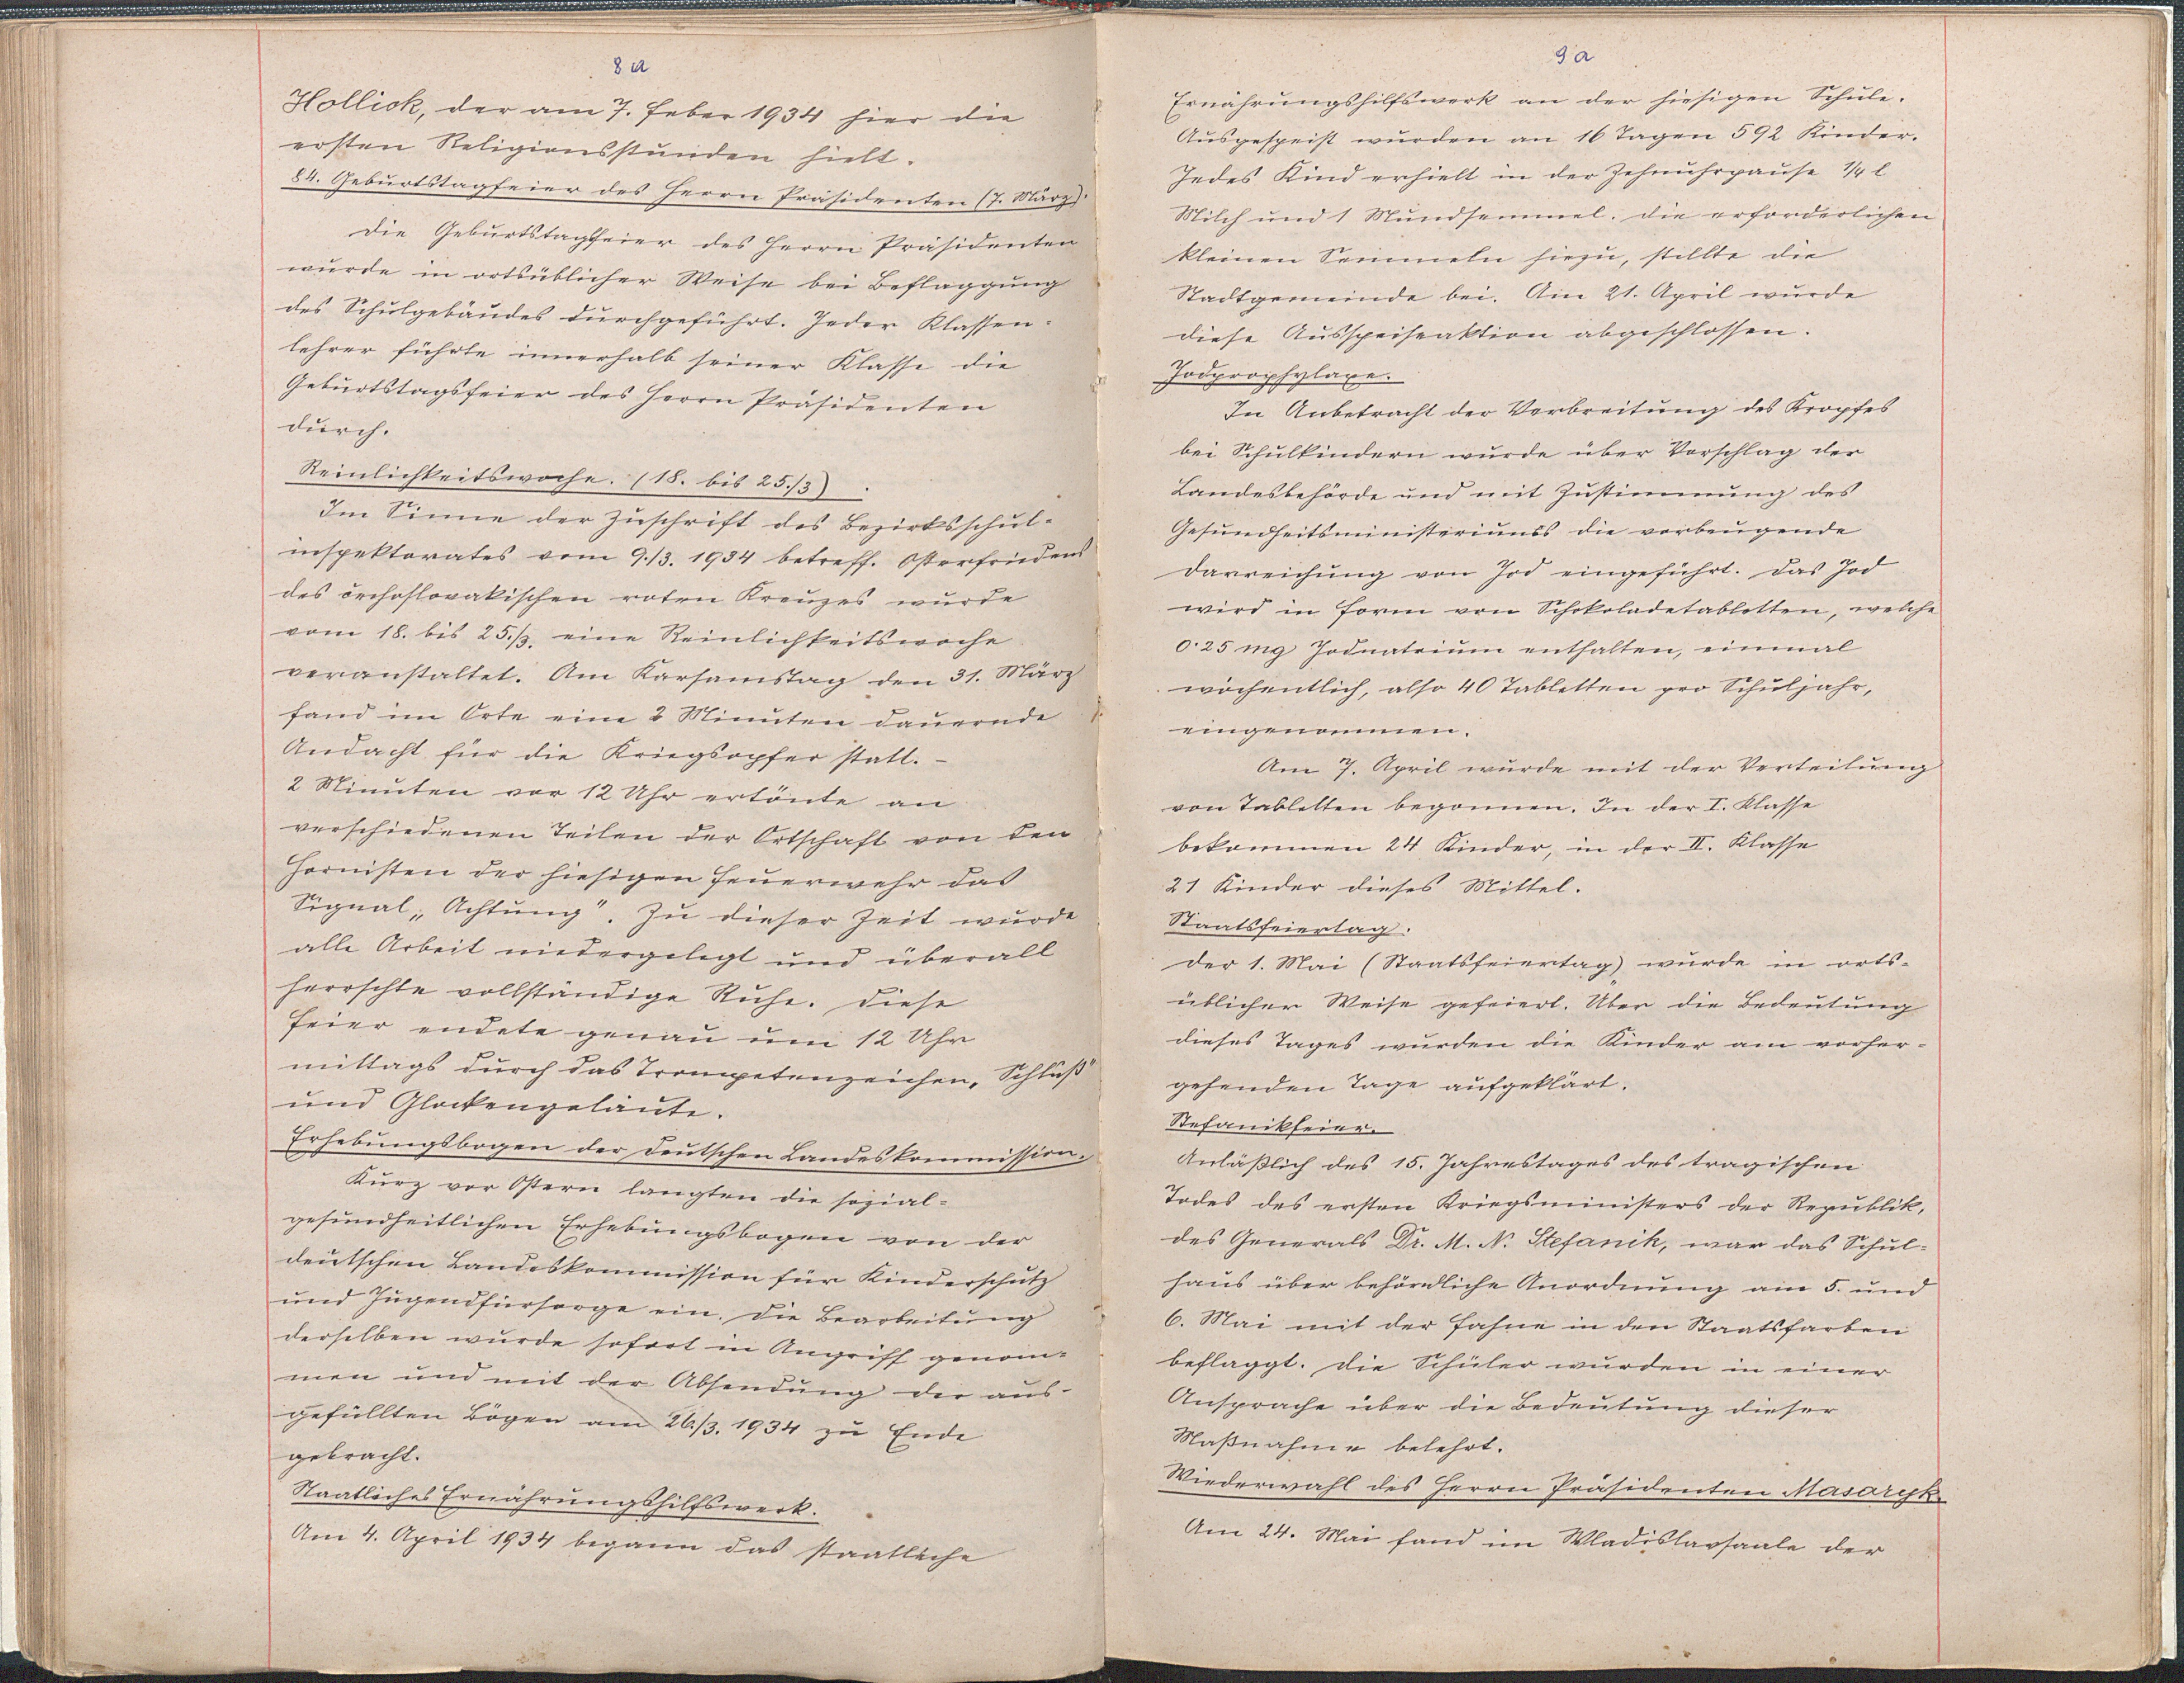 8a
Hollick, der am 7. Feber 1934 hier die
ersten Religionsstunden hielt.
84. Geburtstagfeier des Herrn Präsidenten (7. März).
Die Geburtstagsfeier des Herrn Präsidenten
wurde in ortsüblicher Weise bei Beflaggung
des Schulgebäudes durchgeführt. Jeder Klassen-
lehrer führte innerhalb seiner Klasse die
Geburtstagsfeier des Herrn Präsidenten
durch.
Reinlichkeitswoche. (18. bis 25./3)
Im Sinne der Zuschrift des Bezirksschul-
inspektorates vom 9./3. 1934 betreff. Osterfriedens
des čechoslovakischen roten Kreuzes wurde
vom 18. bis 25./3. eine Reinlichkeitswoche
veranstaltet. Am Karsamstag den 31. März
fand im Orte eine 2 Minuten dauernde
Andacht für die Kriegsopfer statt. -
2 Minuten vor 12 Uhr ertönte an
verschiedenen Teilen der Ortschaft von den
Hornisten der hiesigen Feuerwehr das
Signal „Achtung". Zu dieser Zeit wurde
alle Arbeit niedergelegt und überall
herrschte vollständige Ruhe. Diese
Feier endete genau um 12 Uhr
mittags durch das Trompetenzeichen „Schluß"
und Glockengeläute.
Erhebungsbogen der Deutschen Landeskommission.
Kurz vor Ostern langten die sozial-
gesundheitlichen Erhebungsbogen von der
deutschen Landeskommission für Kinderschutz
und Jugendfürsorge ein. Die Bearbeitung
derselben wurde sofort in Angriff genom-
men und mit der Absendung der aus-
gefüllten Bögen am 26./3. 1934 zu Ende
gebracht.
Staatliches Ernährungshilfswerk.
Am 4. April 1934 begann das staatliche
9a
Ernährungshilfswerk an der hiesigen Schule.
Ausgespeist wurden an 16 Tagen 592 Kinder.
Jedes Kind erhielt in der Zehnuhrpause 1/4 l
Milch und 1 Mundsemmel. Die erforderlichen
kleinen Semmeln hiezu, stellte die
Stadtgemeinde bei. Am 21. April wurde
diese Ausspeiseaktion abgeschlossen.
Jodprophylaxe.
In Anbetracht der Verbreitung des Kropfes
bei Schulkindern wurde über Vorschlag der
Landesbehörde und mit Zustimmung des
Gesundheitsministeriums die vorbeugende
Darreichung von Jod eingeführt. Das Jod
wird in Form von Schokoladetabletten, welche
0·25 mg Jodnatrium enthalten, einmal
wöchentlich, also 40 Tabletten pro Schuljahr,
eingenommen.
Am 7. April wurde mit der Verteilung
von Tabletten begonnen. In der I. Klasse
bekommen 24 Kinder, in der II. Klasse
21 Kinder dieses Mittel.
Staatsfeiertag.
Der 1. Mai (Staatsfeiertag) wurde in orts-
üblicher Weise gefeiert. Über die Bedeutung
dieses Tages wurden die Kinder am vorher-
gehenden Tage aufgeklärt.
Stefanikfeier.
Anläßlich des 15. Jahrestages des tragischen
Todes des ersten Kriegsministers der Republik,
des Generals Dr. M. N. Stefanik, war das Schul-
haus über behördliche Anordnung am 5. und
6. Mai mit der Fahne in den Staatsfarben
beflaggt. Die Schüler wurden in einer
Ansprache über die Bedeutung dieser
Maßnahme belehrt.
Wiederwahl des Herrn Präsidenten Masaryk.
Am 24. Mai fand im Wladislavsaale der